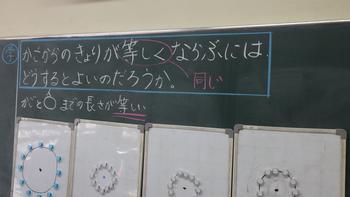 学 かごからのきょりが等しくならぶには、
どうするとよいのだろうか。 同じ
かごと○までの長さが等しい